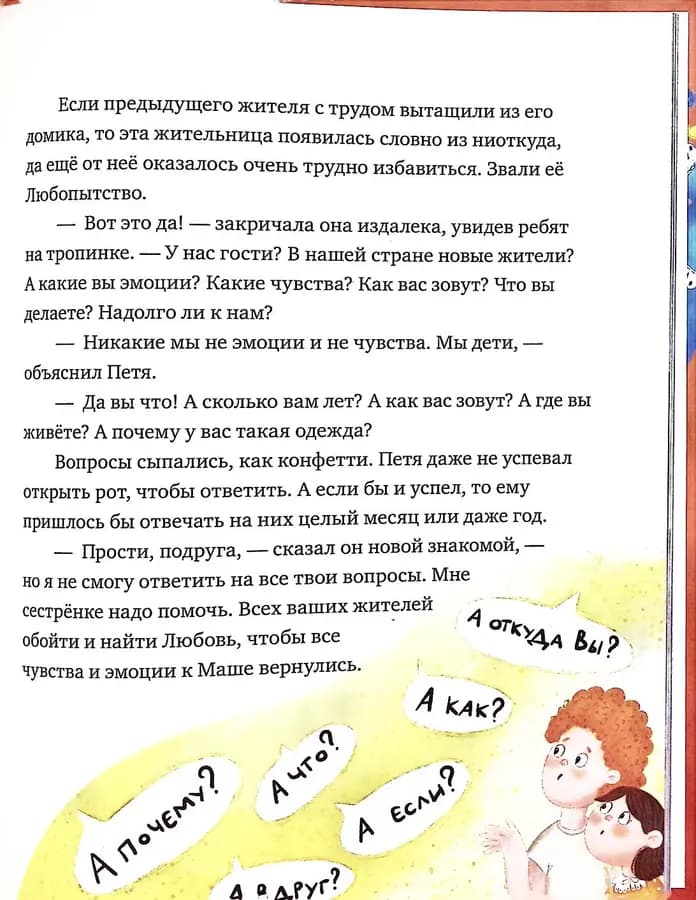 Если предыдущего жителя с трудом вытащили из его
домика, то эта жительница появилась словно из ниоткуда,
да ещё от неё оказалось очень трудно избавиться. Звали её
Любопытство.
— Вот это да! — закричала она издалека, увидев ребят
на тропинке. — У нас гости? В нашей стране новые жители?
А какие вы эмоции? Какие чувства? Как вас зовут? Что вы
делаете? Надолго ли к нам?
— Никакие мы не эмоции и не чувства. Мы дети, —
объяснил Петя.
— Да вы что! А сколько вам лет? А как вас зовут? А где вы
живёте? А почему у вас такая одежда?
Вопросы сыпались, как конфетти. Петя даже не успевал
открыть рот, чтобы ответить. А если бы и успел, то ему
пришлось бы отвечать на них целый месяц или даже год.
— Прости, подруга, — сказал он новой знакомой, —
но я не смогу ответить на все твои вопросы. Мне
сестрёнке надо помочь. Всех ваших жителей
обойти и найти Любовь, чтобы все
чувства и эмоции к Маше вернулись.
А откуда вы?
А как?
А что?
А почему?
А если?
А вдруг?